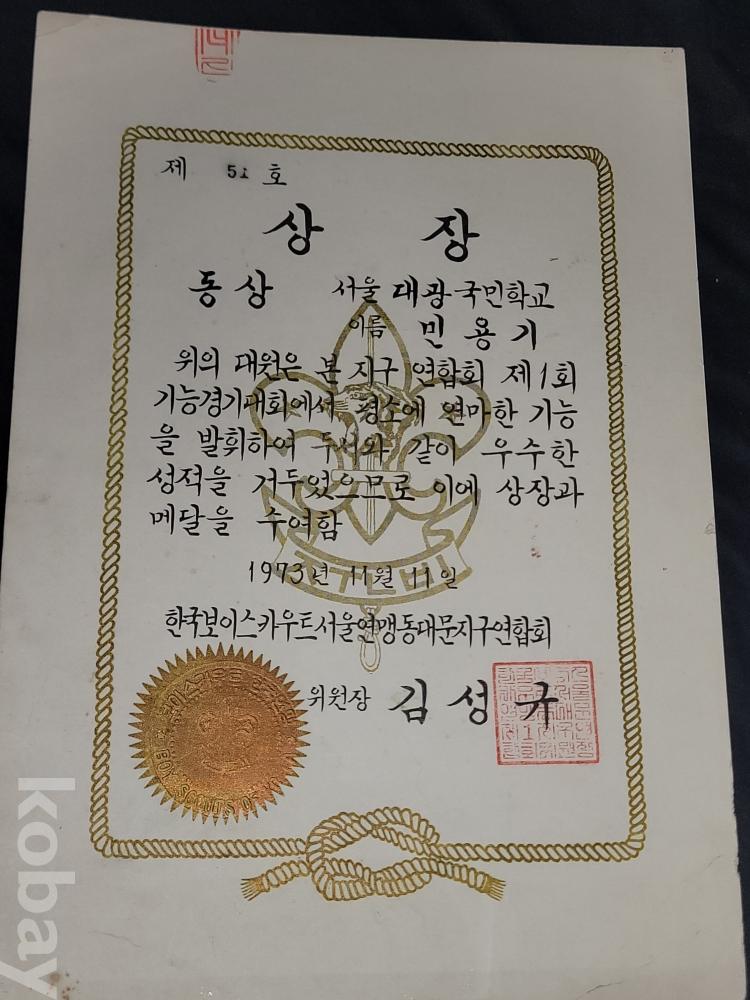 제 51 호
상 장
동상 서울 대광국민학교
이름 민용기
위의 대원은 본 지구 연합회 제1회
기능경기대회에서 평소에 연마한 기능
을 발휘하여 두서와 같이 우수한
성적을 거두었으므로 이에 상장과
메달을 수여함
1973년 11월 11일
한국보이스카우트서울연맹동대문지구연합회
위원장 김성규
SCOUTS OF
kobay